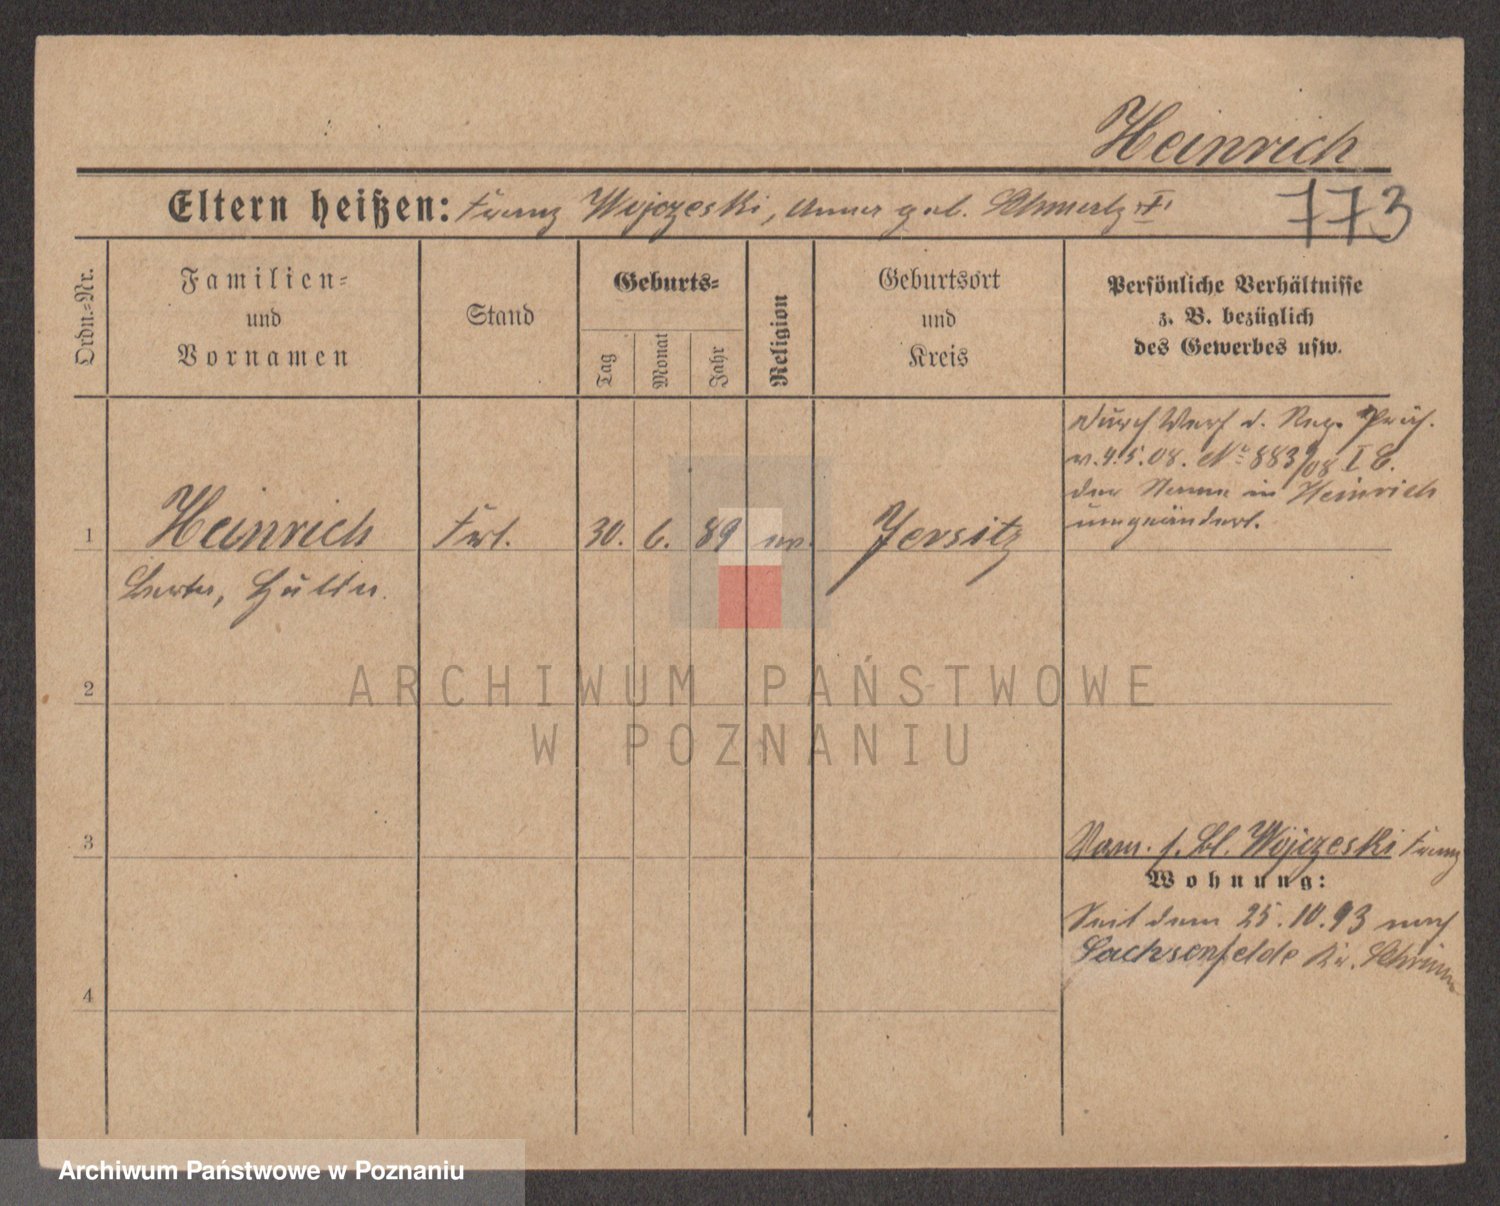 Heinrich
Eltern heißen: Franz Wojczeski, Anna geb. Schmertz
773
Ordn.=Nr.
Familien=
und
Vornamen
Stand
Geburts=
Tag
Monat
Jahr
Religion
Geburtsort
und
Kreis
Persönliche Verhältnisse
z. B. bezüglich
des Gewerbes usw.
1
Heinrich
Frl.
30.
6.
89
ev.
Jersitz
durch Verf. d. Reg. Präs.
v. 4.5.08. No 883/08 I C.
der Name in Heinrich
umgeändert.
2
3
4
Vorm. s. Bl. Wojczeski Franz
Wohnung:
Seit dem 25.10.93 nach
Sachsenfelde Kr. Schrimm
ARCHIWUM PAŃSTWOWE
W POZNANIU
Archiwum Państwowe w Poznaniu